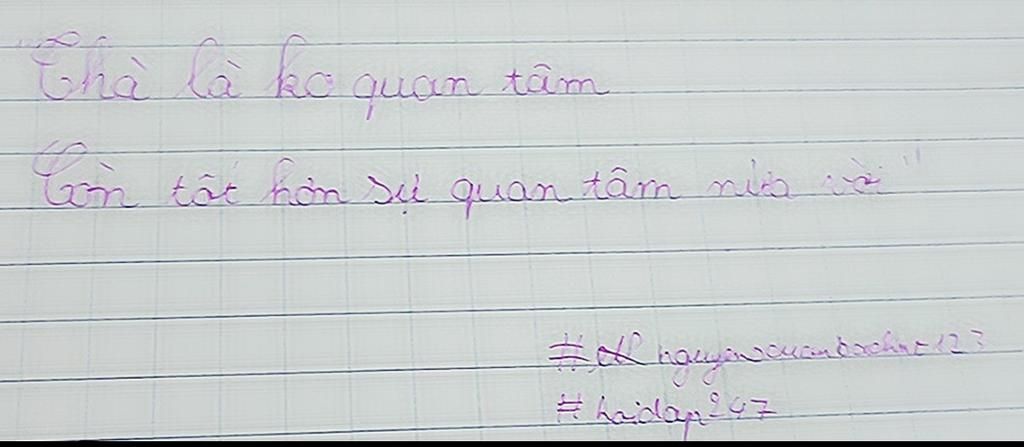 Thà là ko quan tâm
Còn tốt hơn sự quan tâm nửa vời"
#hoidap247